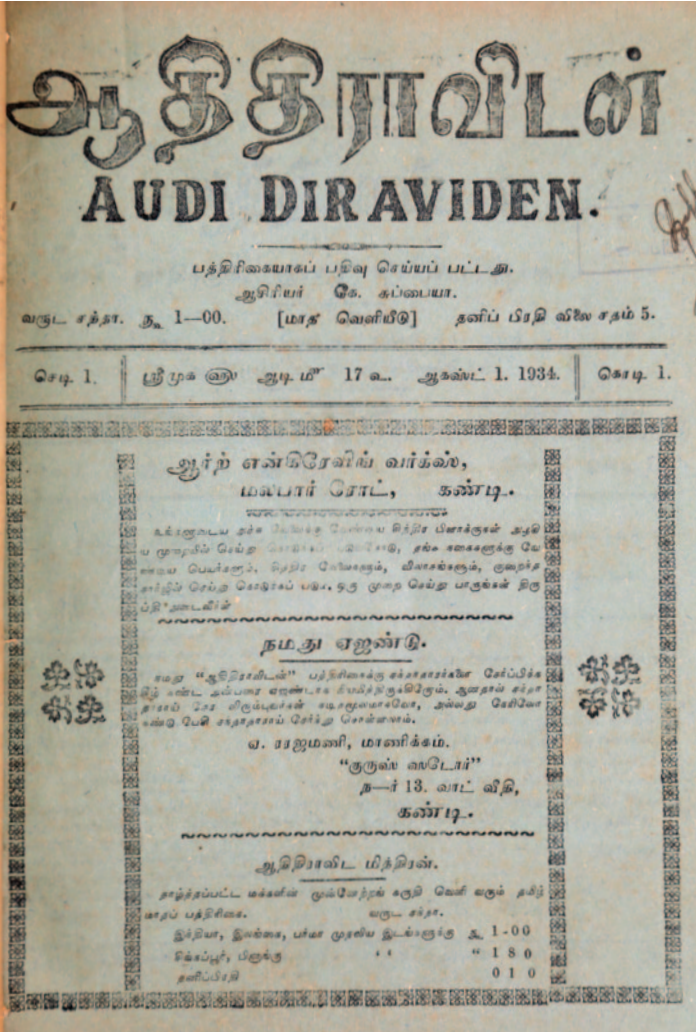 ஆதிதிராவிடன்
AUDI DIRAVIDEN.
பத்திரிகையாகப் பதிவு செய்யப் பட்டது.
ஆசிரியர் கே. சுப்பையா.
வருட சந்தா. ரூ 1—00. [மாத வெளியீடு] தனிப் பிரதி விலை சதம் 5.
செடி 1. ஸ்ரீமுக ௵ ஆடி மீ 17 உ ஆகஸ்ட் 1. 1934. கொடி 1.
ஆர்ற் என்கிரேவிங் வர்க்ஸ்,
மலபார் ரோட், கண்டி.
சித்திர பிளாக்குகள் அழகி
ய முறையில் செய்து நகைகளுக்கு வே
பெயர்களும், சித்திர வேலைகளும், விலாசங்களும், குறைந்த
சார்ஜில் செய்து கொடுக்கப் படும். ஒரு முறை செய்து பாருங்கள் திரு
ப்தி அடைவீர்கள்
நமது ஏஜண்டு.
நமது “ஆதிதிராவிடன்” பத்திரிகைக்கு சந்தாதாரர்களை சேர்ப்பிக்க
கீழ் கண்ட அன்பரை ஏஜண்டாக நியமித்திருக்கிறோம். ஆனதால் சந்தா
தாரராய் சேர விரும்புவர்கள் கடிதமூலமாகவோ, அல்லது நேரிலோ
கண்டு பேசி சந்தாதாராய் சேர்ந்து கொள்ளலாம்.
ஏ. ராஜமணி, மாணிக்கம்.
“குருஸ் ஸ்டோர்”
ந—ர் 13. வாட் வீதி,
கண்டி.
ஆதிதிராவிட மித்திரன்.
தாழ்த்தப்பட்ட மக்களின் முன்னேற்றங் கருதி வெளி வரும் தமிழ்
மாதப் பத்திரிகை. வருட சந்தா.
இந்தியா, இலங்கை, பர்மா முதலிய இடங்களுக்கு ரூ 1-00
சிங்கப்பூர், பினாங்கு “ “ “ 1 8 0
தனிப்பிரதி 0 1 0